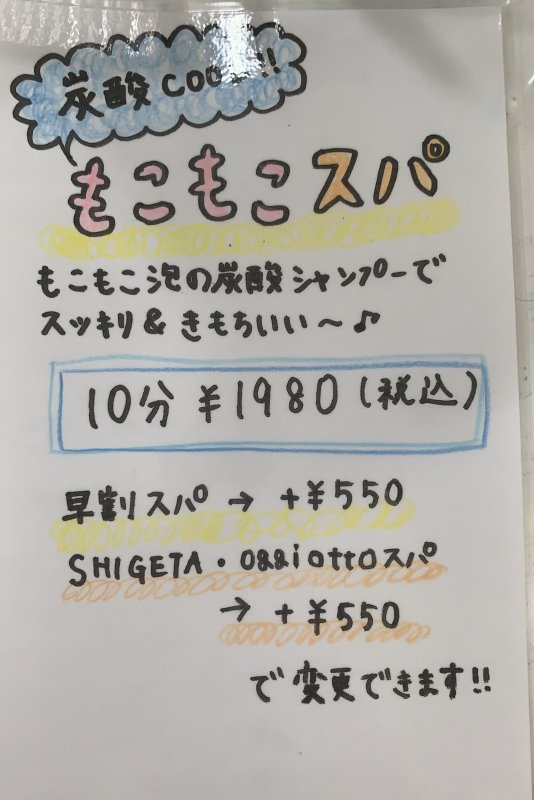 炭酸COOL!!
もこもこスパ
もこもこ泡の炭酸シャンプーで
スッキリ&きもちいい～♪
10分 ¥1980(税込)
早割スパ → +¥550
SHIGETA・oggiottoスパ
→ +¥550
で変更できます!!